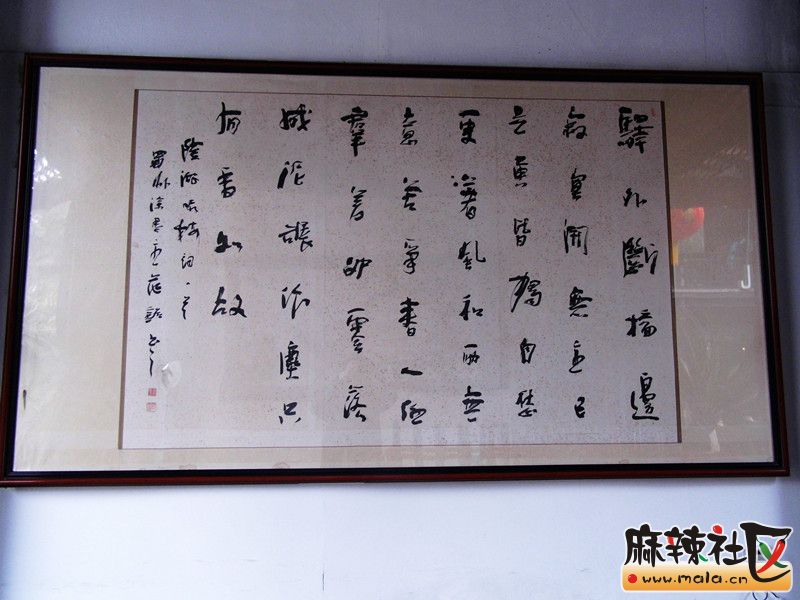 驛外斷橋邊
寂寞開無主已
是黃昏獨自愁
更著風和雨無
意苦爭春一任
羣芳妒零落
成泥碾作塵只
有香如故
陸游咏梅詞一首
蜀州
麻辣社区
www.mala.cn